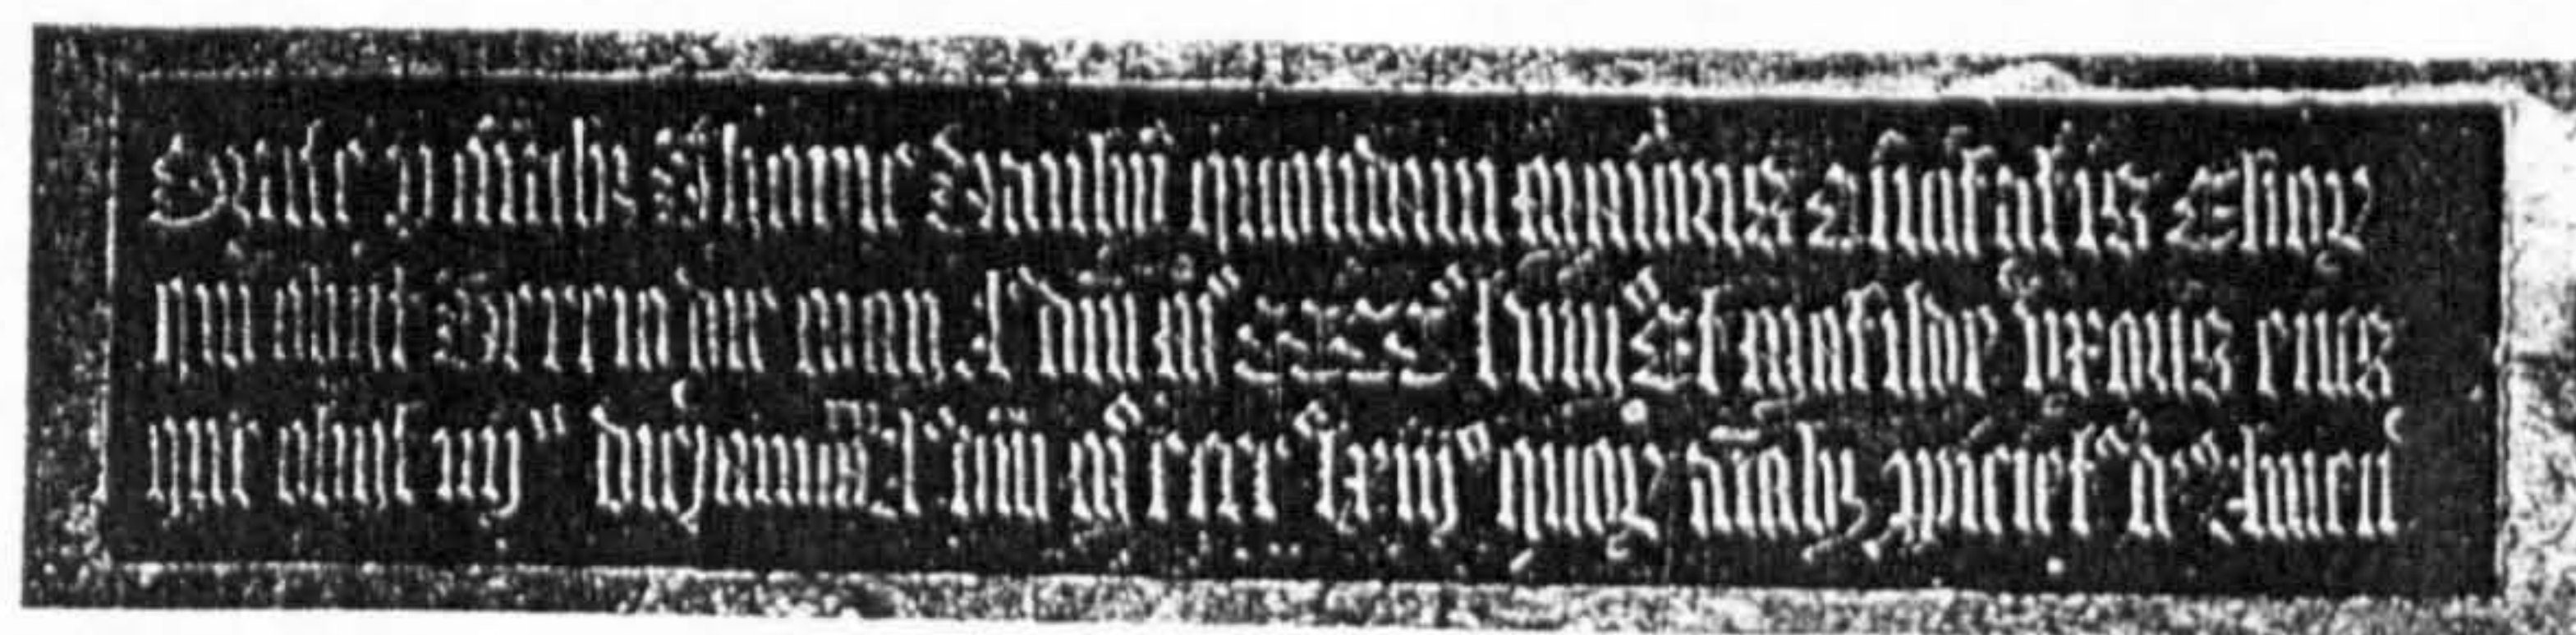 Orate p aiabz Thome Danby quondam maioris Ciuitatis Ebor
qui obiit Tercio die maij A° dni m° CCCC° lviij° Et matilde uxoris eius
que obiit iiij° die januarij A° dni m° cccc° lxiij° quor aiabz ppiciet de Amen